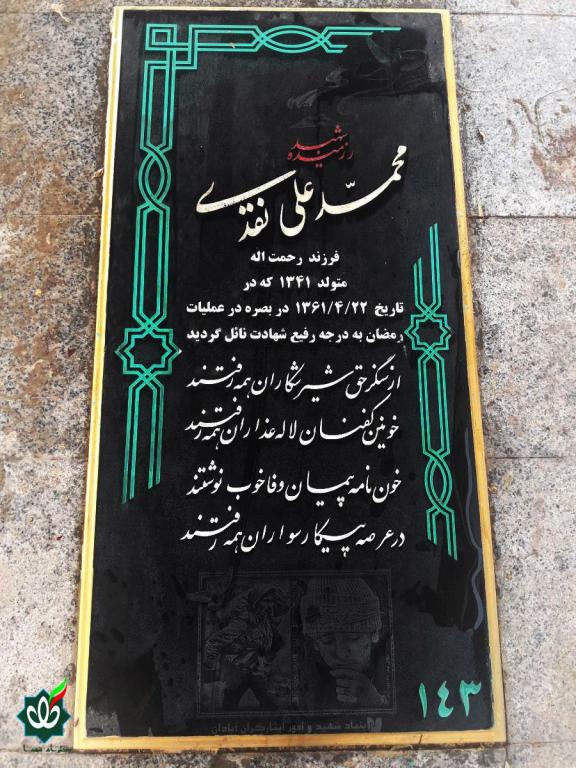 شهید
رزمنده
محمد علی نقدی
فرزند رحمت اله
متولد ۱۳۴۱ که در
تاریخ ۱۳۶۱/۴/۲۲ در بصره در عملیات
رمضان به درجه رفیع شهادت نائل گردید
از سنگر حق شیر شکاران همه رفتند
خونین کفنان لاله عذاران همه رفتند
خون نامه پیمان وفا خوب نوشتند
در عرصه پیکار سواران همه رفتند
بنیاد شهید و امور ایثارگران آبادان
۱۴۳